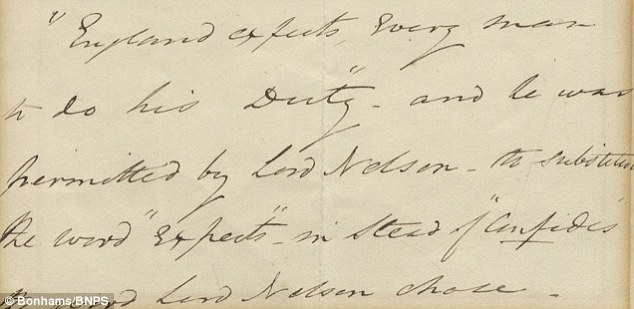 "England expects, Every man
to do his Duty" - and he was
permitted by Lord Nelson - to substitute
the word "Expects" - in Stead of "Confides"
word Lord Nelson chose -
© Bonhams/BNPS